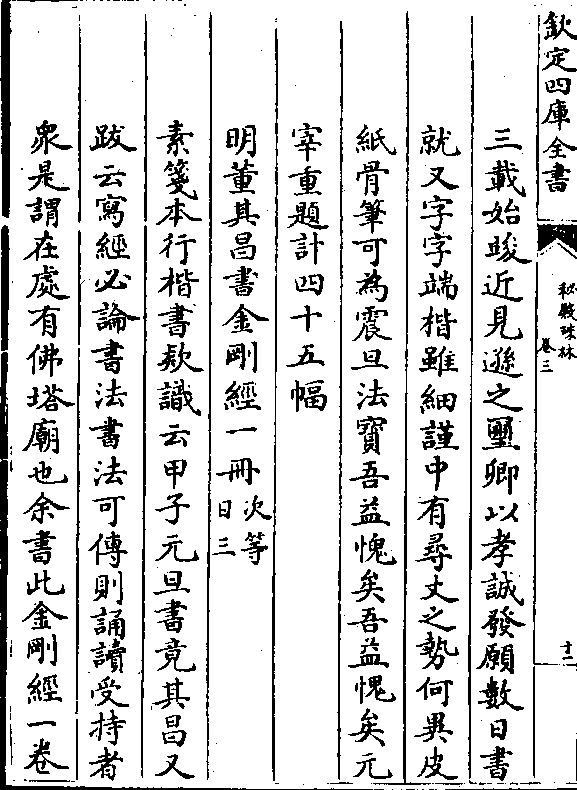 欽定四庫全書
祕殿珠林
卷三
十二
三載始竣近見遜之璽卿以孝誠發願數日書
就又字字端楷雖細謹中有尋丈之勢何異皮
紙骨筆可為震旦法寶吾益愧矣吾益愧矣元
宰重題計四十五幅
明董其昌書金剛經一冊次等日三
素箋本行楷書欵識云甲子元旦書竟其昌又
跋云寫經必論書法書法可傳則誦讀受持者
衆是謂在處有佛塔廟也余書此金剛經一卷